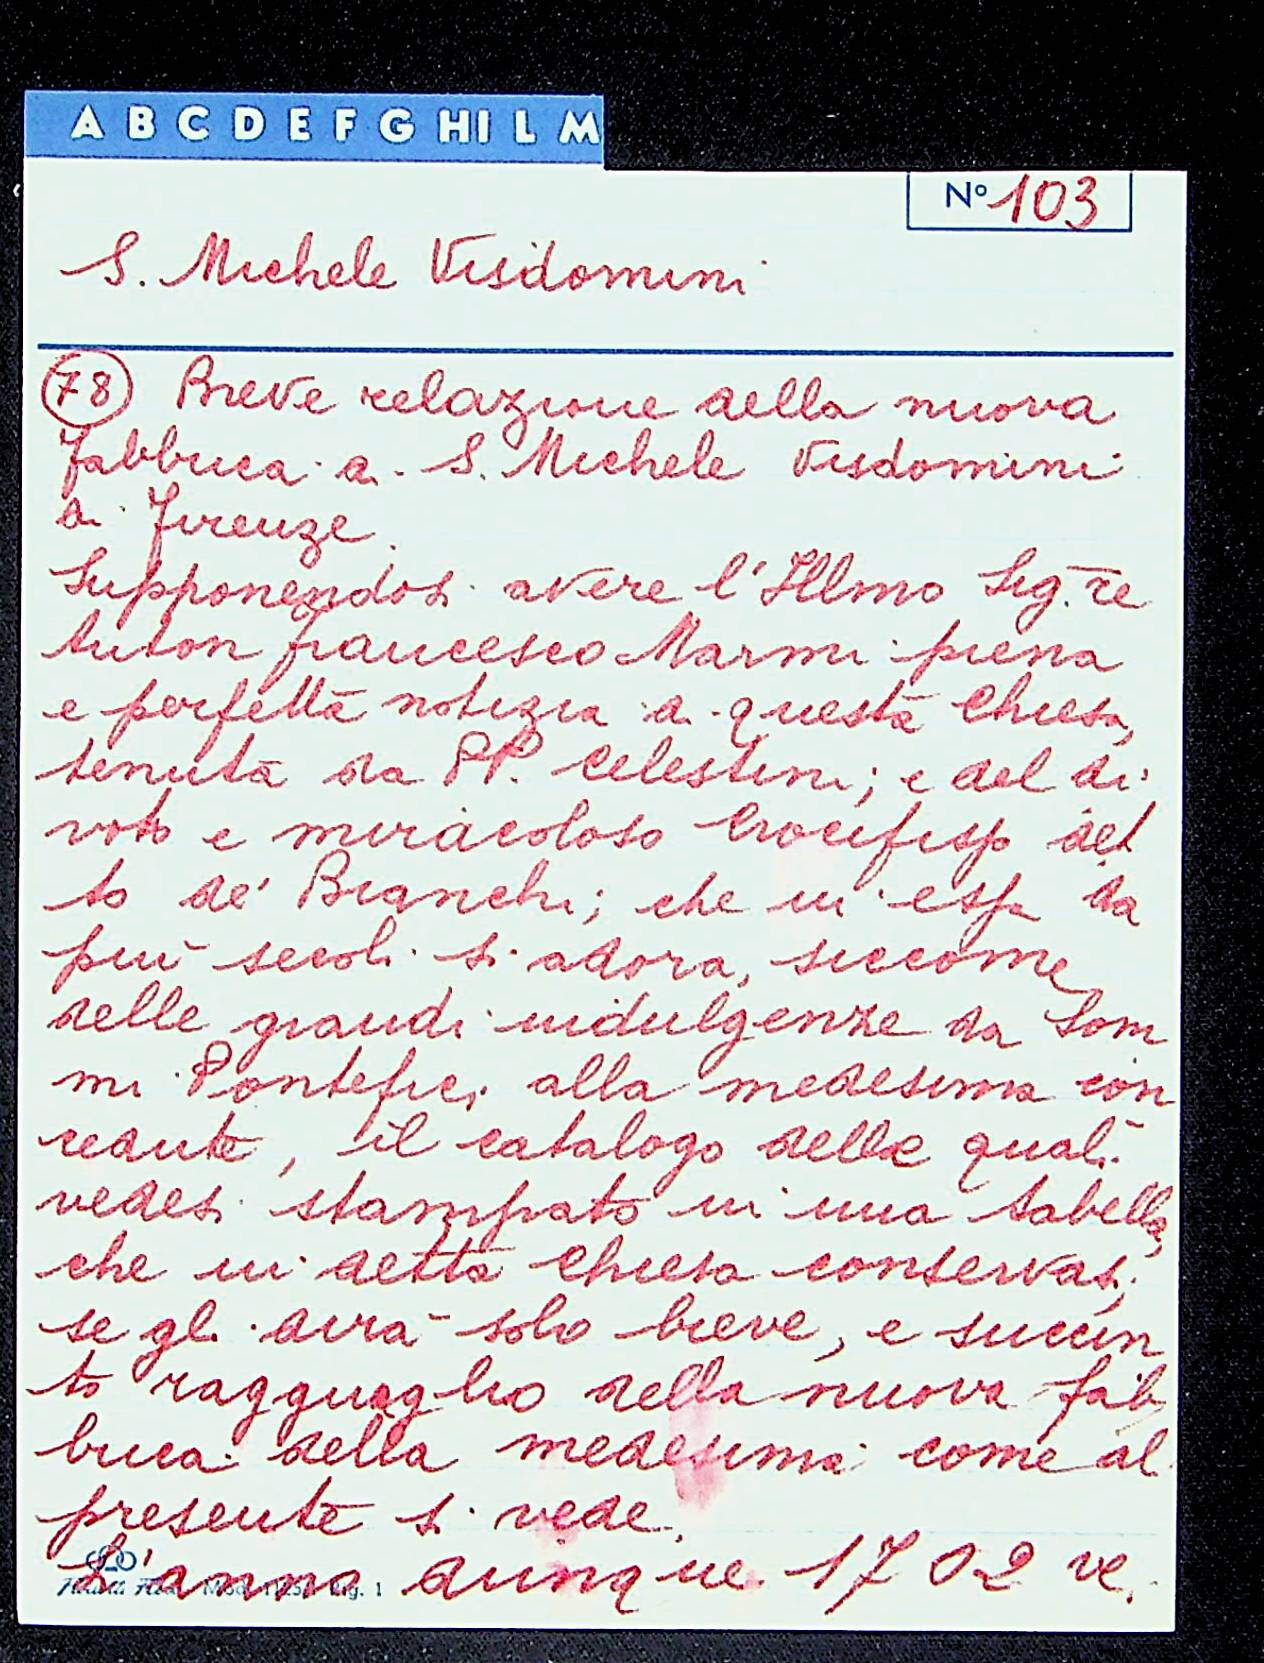 A B C D E F G HI L M
Nº 103
S. Michele Visdomini
78 Breve relazione della nuova
fabbrica di S. Michele Visdomini
di Firenze.
Supponendosi avere l'Illmo Sig.re
Anton Francesco Marmi piena
e perfetta notizia di questa Chiesa,
tenuta da PP. Celestini; e del di
voto e miracoloso Crocifisso det
to de' Bianchi; che in essa da
più secoli si adora, siccome
delle grandi indulgenze da Som
mi Pontefici alla medesima con
cedute, il catalogo delle quali
vedesi stampato in una tabella,
che in detta Chiesa conservasi;
se gli dirà solo breve, e succin
to ragguaglio della nuova fab
brica della medesima come al
presente si vede.
L'anno dunque 1702 ve.
Mod. Rig. 1